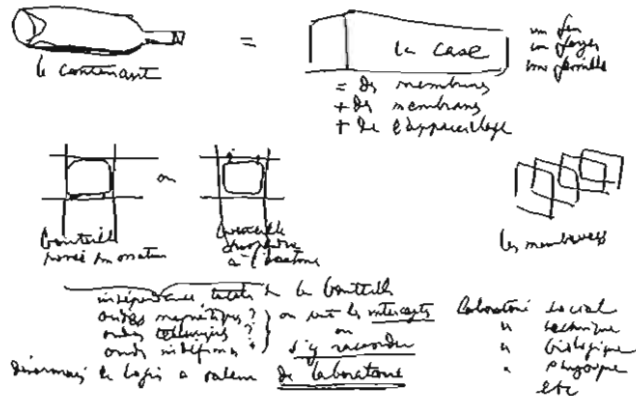 le contenant
=
la case
un feu
un foyer
une famille
= des membrures
+ des membranes
+ de l'appareillage
ou
bouteille
posée sur ossature
bouteille
suspendue
à l'ossature
les membranes
indépendance totale de la bouteille
ondes magnétiques ?
ondes telluriques ?
ondes indéfinies ?
ou peut les intercepter
ou
s'y raccorder
désormais le logis a valeur de laboratoire
Laboratoire social
" technique
" biologique
" physique
etc